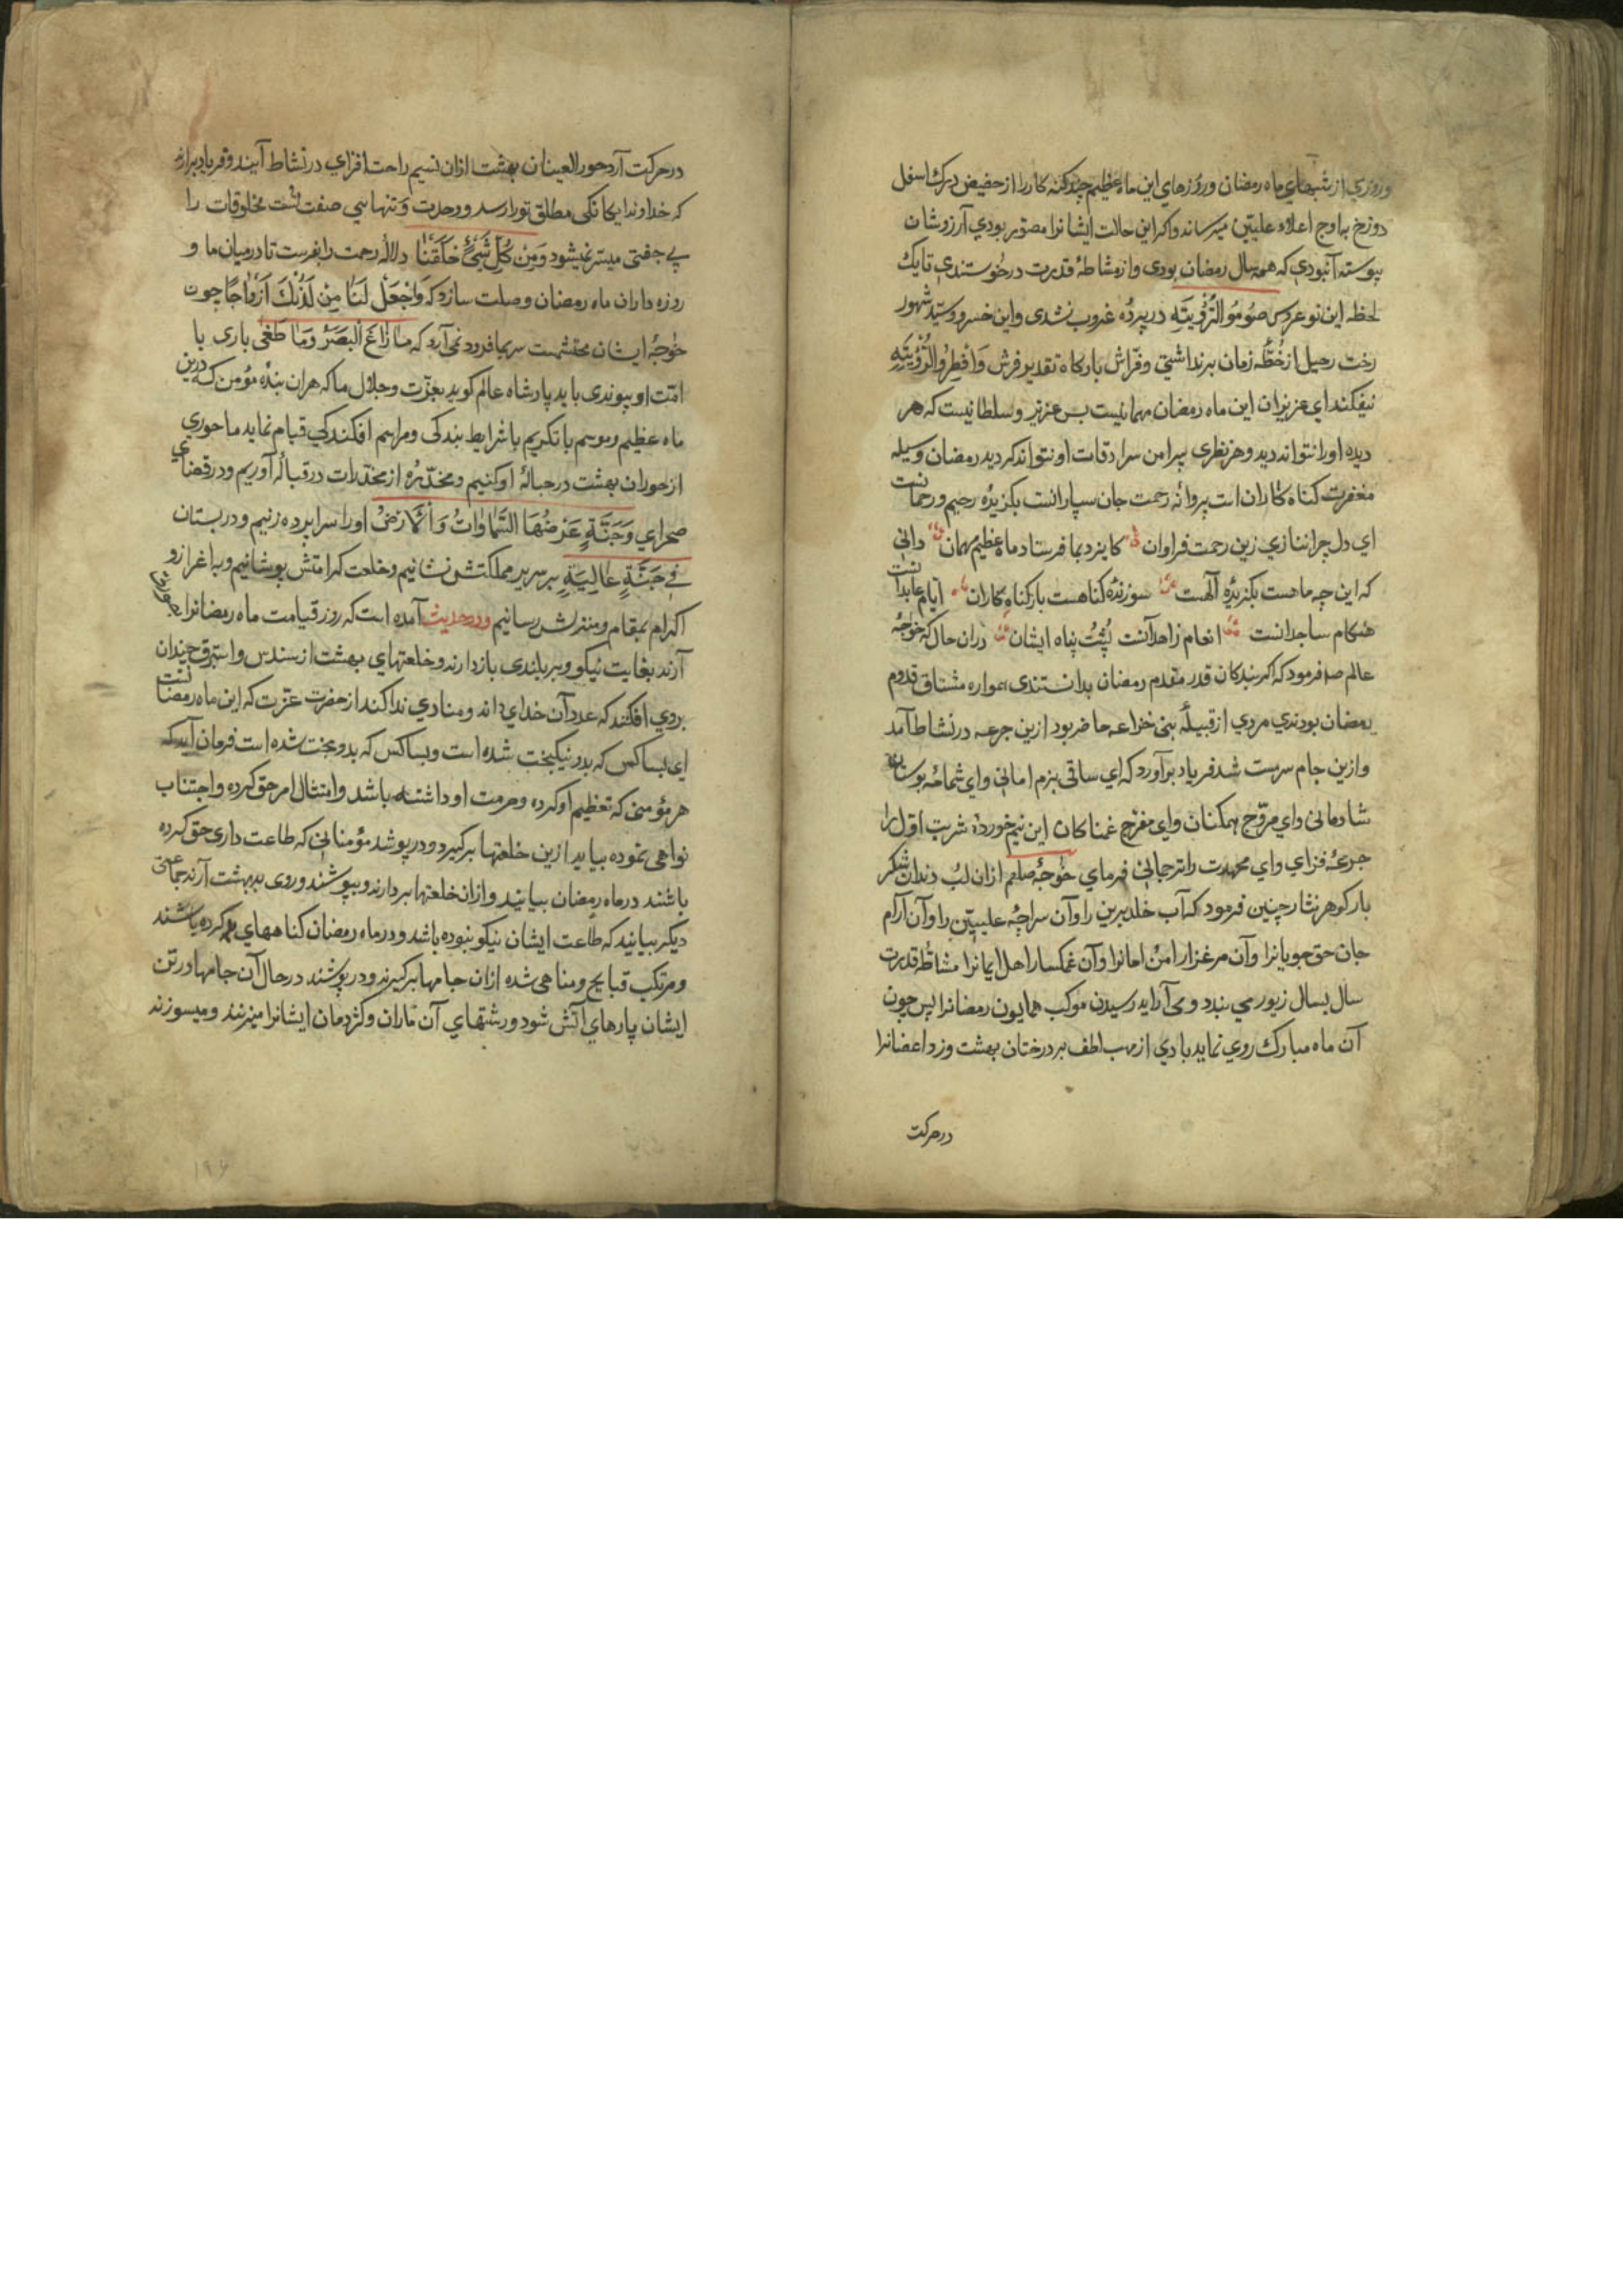 وروزي از شبهاي ماه رمضان وروزهاي اين ماه عظيم چند كنه كار را از حضيض درك اسفل
دوزخ باوج اعلاء عليين ميرساند واكر اين حالت ايشانرا مصور بودي آرزوشان
پيوسته آن بودي كه همه سال رمضان بودى وازمشاطهٔ قدرت درخوستندي تايك
لحظه اين نوعروس صُومُوا لِرُؤيَتِهِ درپردهٔ غروب نشدى واين خسرو وسيّد شهور
رخت رحيل از خُطّهٔ زمان برنداشتي وفرّاش باركاه تقدير فرش وَاَفْطِرُوا لِرُؤْيَتِهِ
نيفكند اي عزيزان اين ماه رمضان مهمانيست بس عزيز وسلطانيست كه هر
ديده اورا نتواند ديد وهر نظرى پيرامن سرادقات او نتواند كرديد رمضان وسيله
مغفرت كناه كاران است پروانهٔ رحمت جان سپارانست بكزيدهٔ رحيم ورحمانست
اي دل چرا ننازي زين رحمت فراوان كايزد بما فرستاد ماه عظيم مهمان دانى
كه اين چه ماهست بكزيدهٔ آلهست سوزندهٔ كناهست بار كناه كاران ايام عابدانست
هنكام ساجدانست انعام زاهدانست پُشتُ پناه ايشان دران حال كه خوجهٔ
عالم صلم فرمود كه اكر بندكان قدر مقدم رمضان بدانستندى همواره مشتاق قدوم
رمضان بودندي مردي از قبيلهٔ بنى خزاعه حاضر بود ازين جرعه درنشاط آمد
وازين جام سرمست شد فرياد برآورد كه اي ساقى بزم امانى واي شمامهٔ بوستان
شادمانى واي مروّح همكنان واي مفرّح غمناكان اين نيم خوردهٔ شربت اوّل را
جرعهٔ فزاي واي محمدت را ترجمانى فرماي خوجهٔ صلعم ازان لب دندان شكر
بار كوهر نثار چنين فرمود كه آب خلد برين را وآن سراچهٔ عليين را وآن آرام
جان حق جويانرا وآن مرغزار امن امانرا وآن غمكسار اهل ايمانرا مشاطهٔ قدرت
سال بسال زيور مي بندد ومى آرايد رسيدن موكب همايون رمضانرا پس چون
آن ماه مبارك روي نمايد بادي از مهب لطف بر درختان بهشت وزد اغصانرا
درحركت
درحركت آرد حور العينان بهشت ازان نسيم راحت افزاي درنشاط آيند وفرياد برارند
كه خداوندا يكانكى مطلق تورا رسد ووحدت وتنهايي صفت تست مخلوقات را
بي جفتى ميسّر نميشود وَمِنْ كُلِّ شَيْءٍ خَلَقْنَا دلالهٔ رحمت را بفرست تا درميان ما و
روزه داران ماه رمضان وصلت سازد كه وَاجْعَلْ لَنَا مِنْ لَدُنْكَ اَزْوَاجًا چون
خوجهٔ ايشان محتشمست سر بما فرود نمى آرد كه مَا زَاغَ الْبَصَرُ وَمَا طَغَى بارى با
امّت او پيوندى بايد پادشاه عالم كويد بعزّت وجلال ما كه هران بندهٔ مؤمن كه درين
ماه عظيم وموسم با تكريم با شرايط بندكى ومراسم افكندكي قيام نمايد ما حوري
از حوران بهشت در حبالهٔ او كنيم ومخدّرهٔ از مخدّرات در قبالهٔ آوريم ودر فضاي
صحراي وَجَنَّةٍ عَرْضُهَا السَّمَاوَاتُ وَالْاَرْضُ اورا سراپرده زنيم ودر بستان
فِي جَنَّةٍ عَالِيَةٍ بر سرير مملكتش نشانيم وخلعت كرامتش بپوشانيم وباعزاز و
اكرام بمقام ومنزلش رسانيم ودرحديث آمده است كه روز قيامت ماه رمضانرا
آرند بغايت نيكو وبر بلندى بازدارند وخلعتهاي بهشت از سندس واستبرق چندان
بروي افكند كه عدد آن خداي داند ومنادي ندا كند از حضرت عزّت كه اين ماه رمضانست
اي بسا كس كه بدو نيكبخت شده است وبسا كس كه بدو بدبخت شده است فرمان آيد كه
هر مؤمنى كه تعظيم او كرده وحرمت او داشته باشد وامتثال امر حق كرده واجتناب
نواهى نموده بيايد ازين خلعتها بركيرد ودرپوشد مؤمنانى كه طاعت دارى حق كرده
باشند درماه رمضان بيايند وازان خلعتها بردارند وبپوشند وروى ببهشت آرند جماعتى
ديكر بيايند كه طاعت ايشان نيكو نبوده باشد ودرماه رمضان كناههاي كرده باشند
ومرتكب قبايح ومناهى شده ازان جامها بركيرند ودرپوشند درحال آن جامها درتن
ايشان پارهاي آتش شود ورشتهاي آن ماران وكژدمان ايشانرا ميزنند وميسوزند